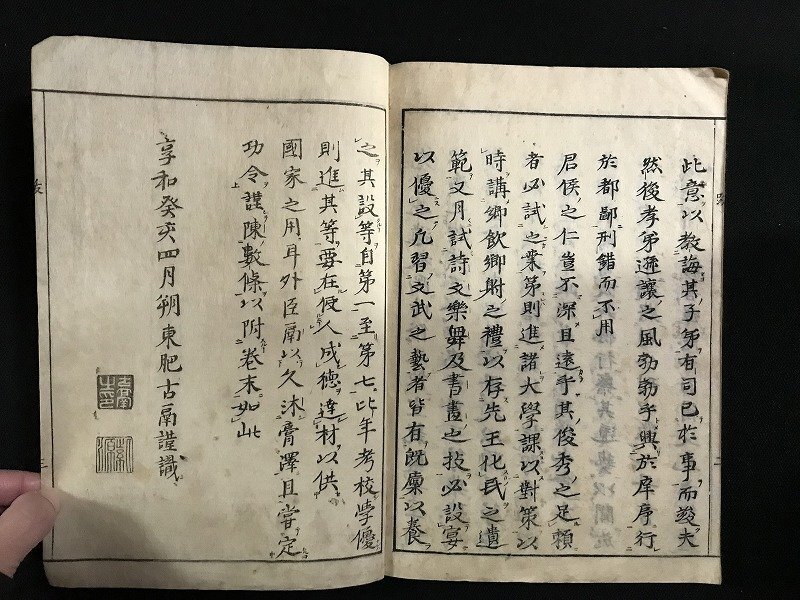 此意以教誨其子弟有司已於事而竣夫
然後孝弟遜讓之風勃勃乎興於庠序行
於都鄙刑錯而不用
君侯之仁豈不深且遠乎其俊秀之足頼
者必試之業第則進諸大學課以對策以
時講鄉飲鄉射之禮以存先王化民之遺
範又月試詩文樂舞及書畫之技必設宴
以優之凡習文武之藝者皆有既廩以養
之其設等自第一至第七比年考校學優
則進其等要在使人成德達材以供
國家之用耳外臣鬲以久沐膏澤且嘗定
功令謹陳數條以附卷末如此
享和癸亥四月朔東肥古鬲謹識